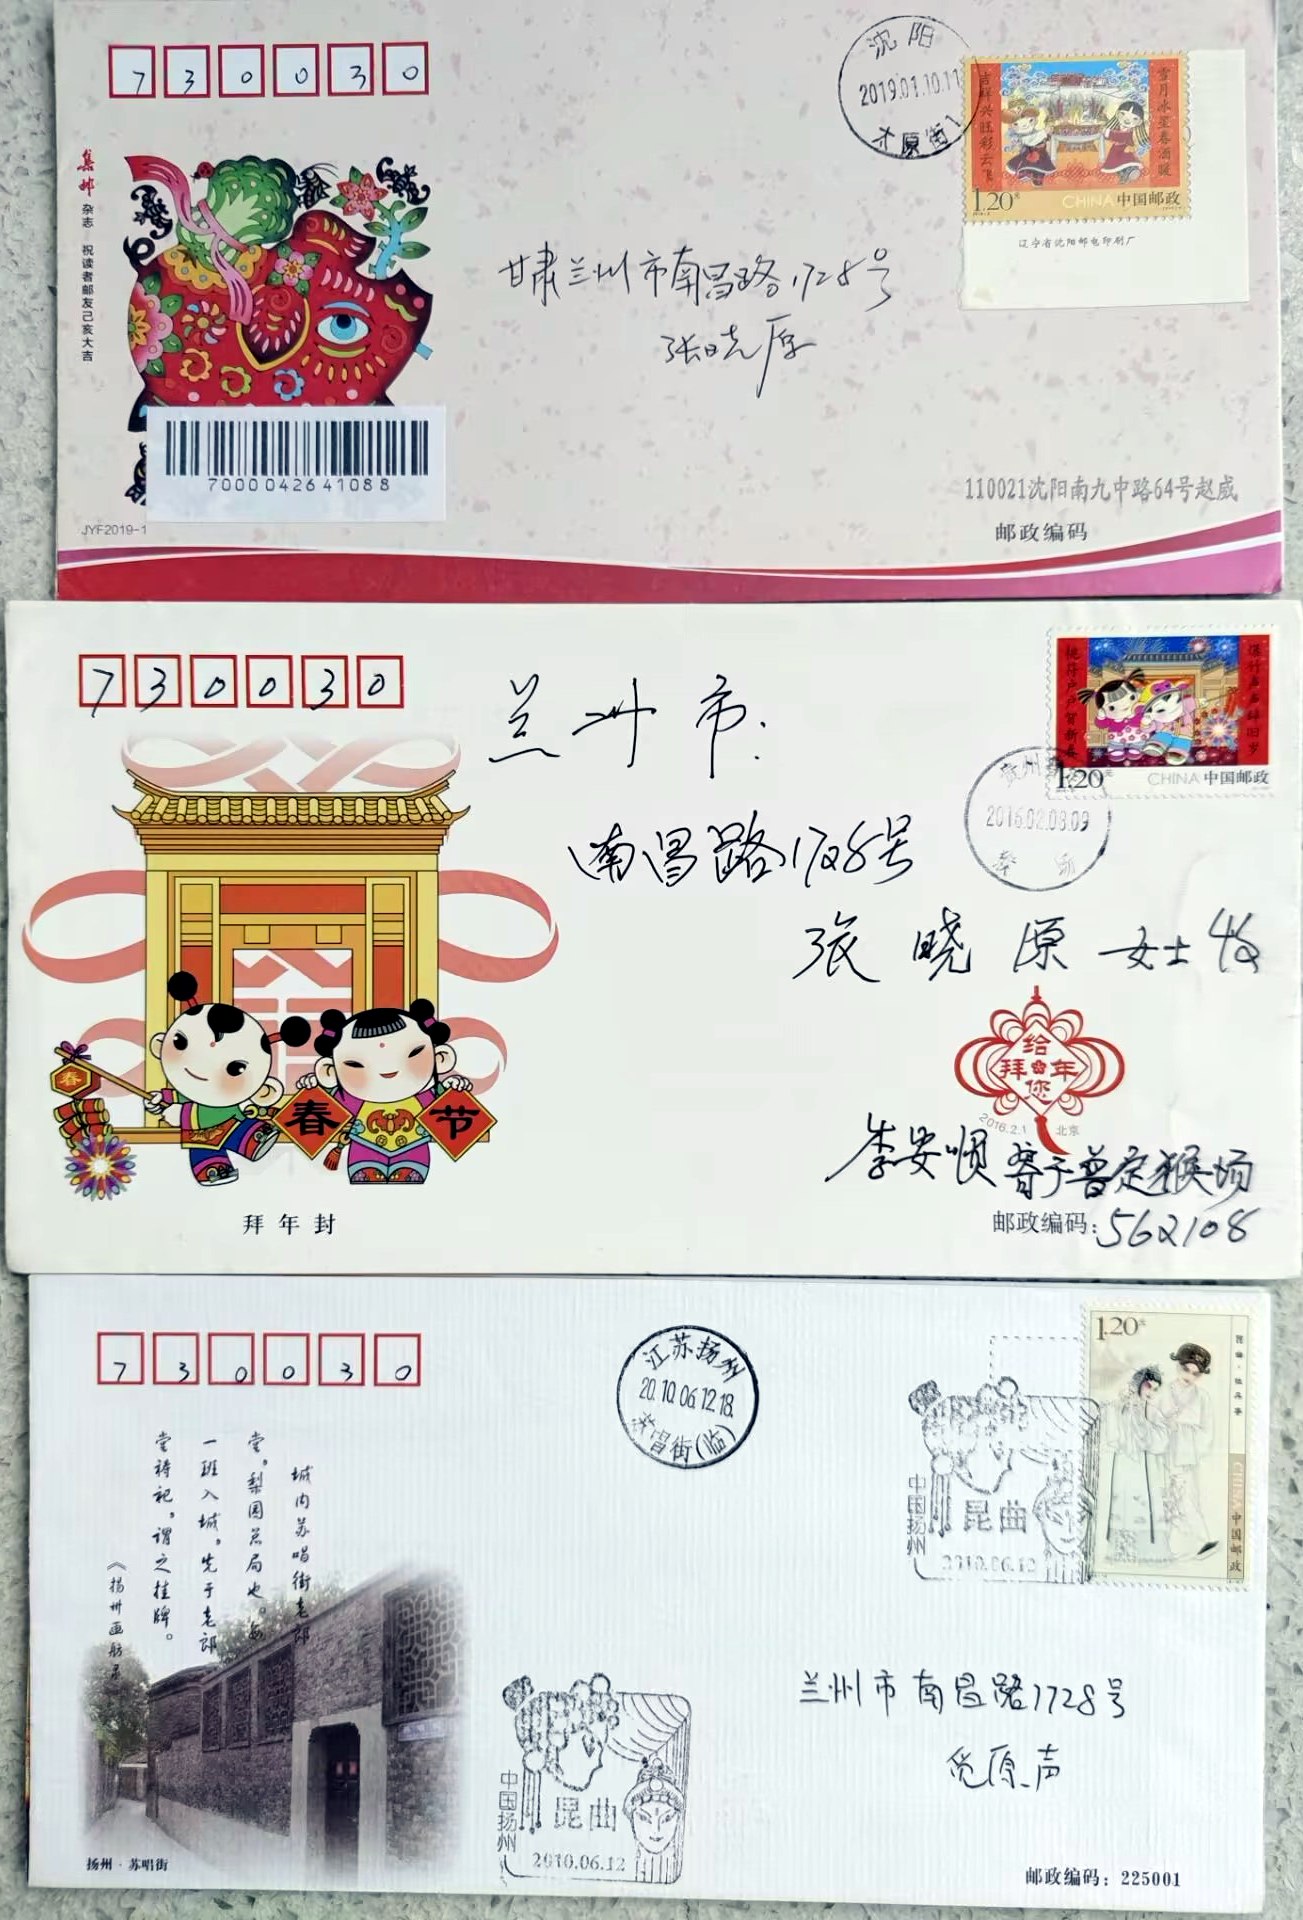 730030
沈阳
2019.01.10.11
吉祥兴旺彩云飞
雪月冰蓝春酒暖
1.20元
CHINA 中国邮政
辽宁省沈阳邮电印刷厂
集邮 杂志 祝读者邮友己亥大吉
甘肃兰州市南昌路1728号
张晓原
7000042641088
110021沈阳南九中路64号赵威
JYF2019-1
邮政编码
730030
爆竹声声辞旧岁
桃符户户贺新春
1.20元
CHINA 中国邮政
2016.02.08.09
兰州市:
南昌路1728号
张晓原女士收
给
拜年
您
2016.2.1 北京
春
春节
李安顺寄于普定猴场
拜年封
邮政编码:562108
730030
江苏扬州
20.10.06.12.18
苏唱街(临)
1.20元
昆曲·牡丹亭
CHINA 中国邮政
中国扬州
昆曲
2010.06.12
城内苏唱街老郎
堂。梨园总局也。每
一班入城。先于老郎
堂祷祀。谓之挂牌。
《扬州画舫录
兰州市南昌路1728号
觅原声
中国扬州
昆曲
2010.06.12
扬州·苏唱街
邮政编码：225001